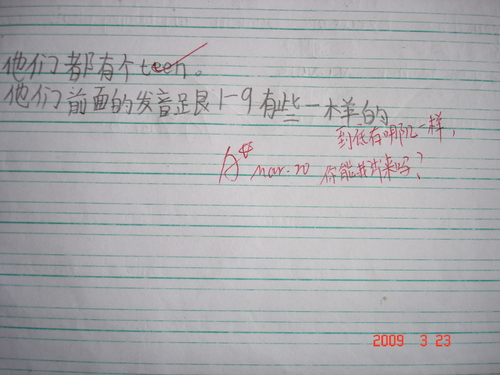 他们都有个teen。
他们前面的发音跟1-9有些一样的
到底有哪几一样,
A mar.20 你能找出来吗?
2009 3 23